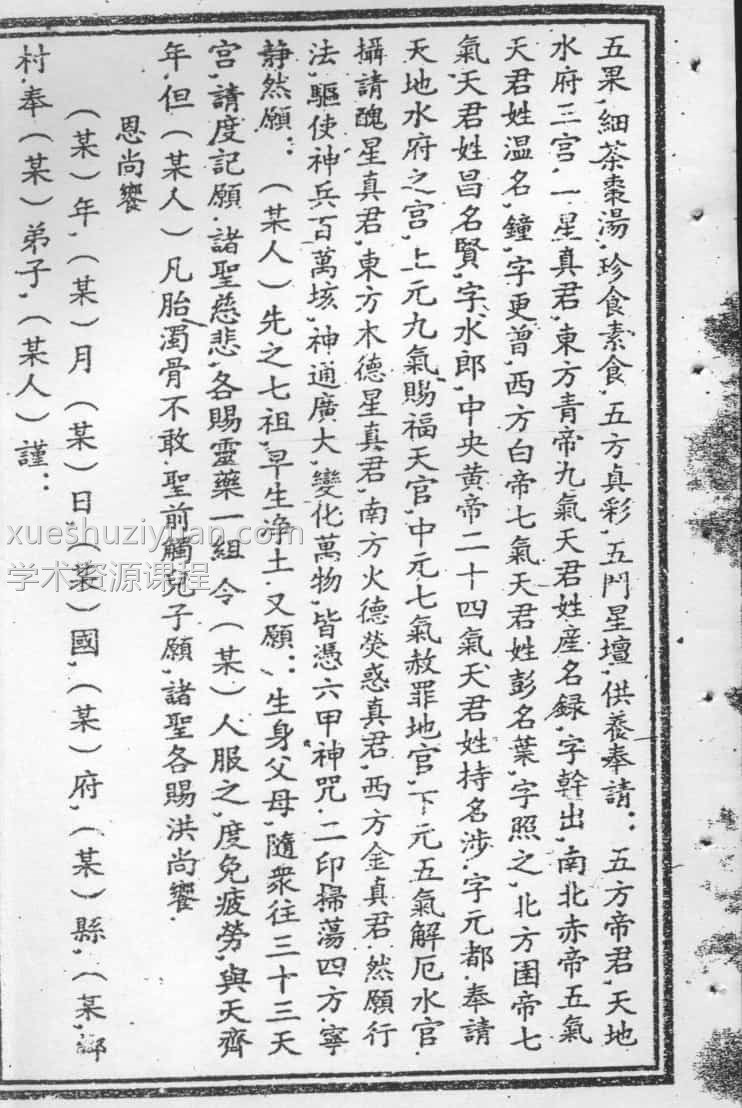 五果,細茶棗湯,珍食素食,五方真彩,五鬥星壇,供養奉請:五方帝君,天地
水府三宫,一星真君,東方青帝九氣天君姓産名録,字幹出,南北赤帝五氣
天君姓温名,鐘,字更曾,西方白帝七氣天君姓彭名葉,字照之,北方圉帝七
氣天君姓昌名賢,字,水郎,中央黄帝二十四氣天君姓持名涉,字元都,奉請
天地水府之宫,上元九氣賜福天官,中元七氣赦罪地官,下元五氣解厄水官.
攝請醜星真君,東方木德星真君,南方火德熒惑真君,西方金真君,然願行
法,驅使神兵百萬垓,神通廣大,變化萬物,皆憑六甲神咒.二印掃蕩四方,寧
静然願:(某人)先之七祖,早生净土.又願:、生身父母,隨衆往三十三天
宫,請度記願.諸聖慈悲,各賜靈藥一組,令(某)人服之,度免疲勞,與天齊
年,但(某人)凡胎濁骨不敢,聖前觸兒子願,諸聖各賜洪尚饗.
恩尚饗
(某)年,(某)月(某)日,(某)國,(某)府,(某)縣,(某)鄉
村,奉(某)弟子,(某人)謹:
xueshuziyuan.com
学术资源课程